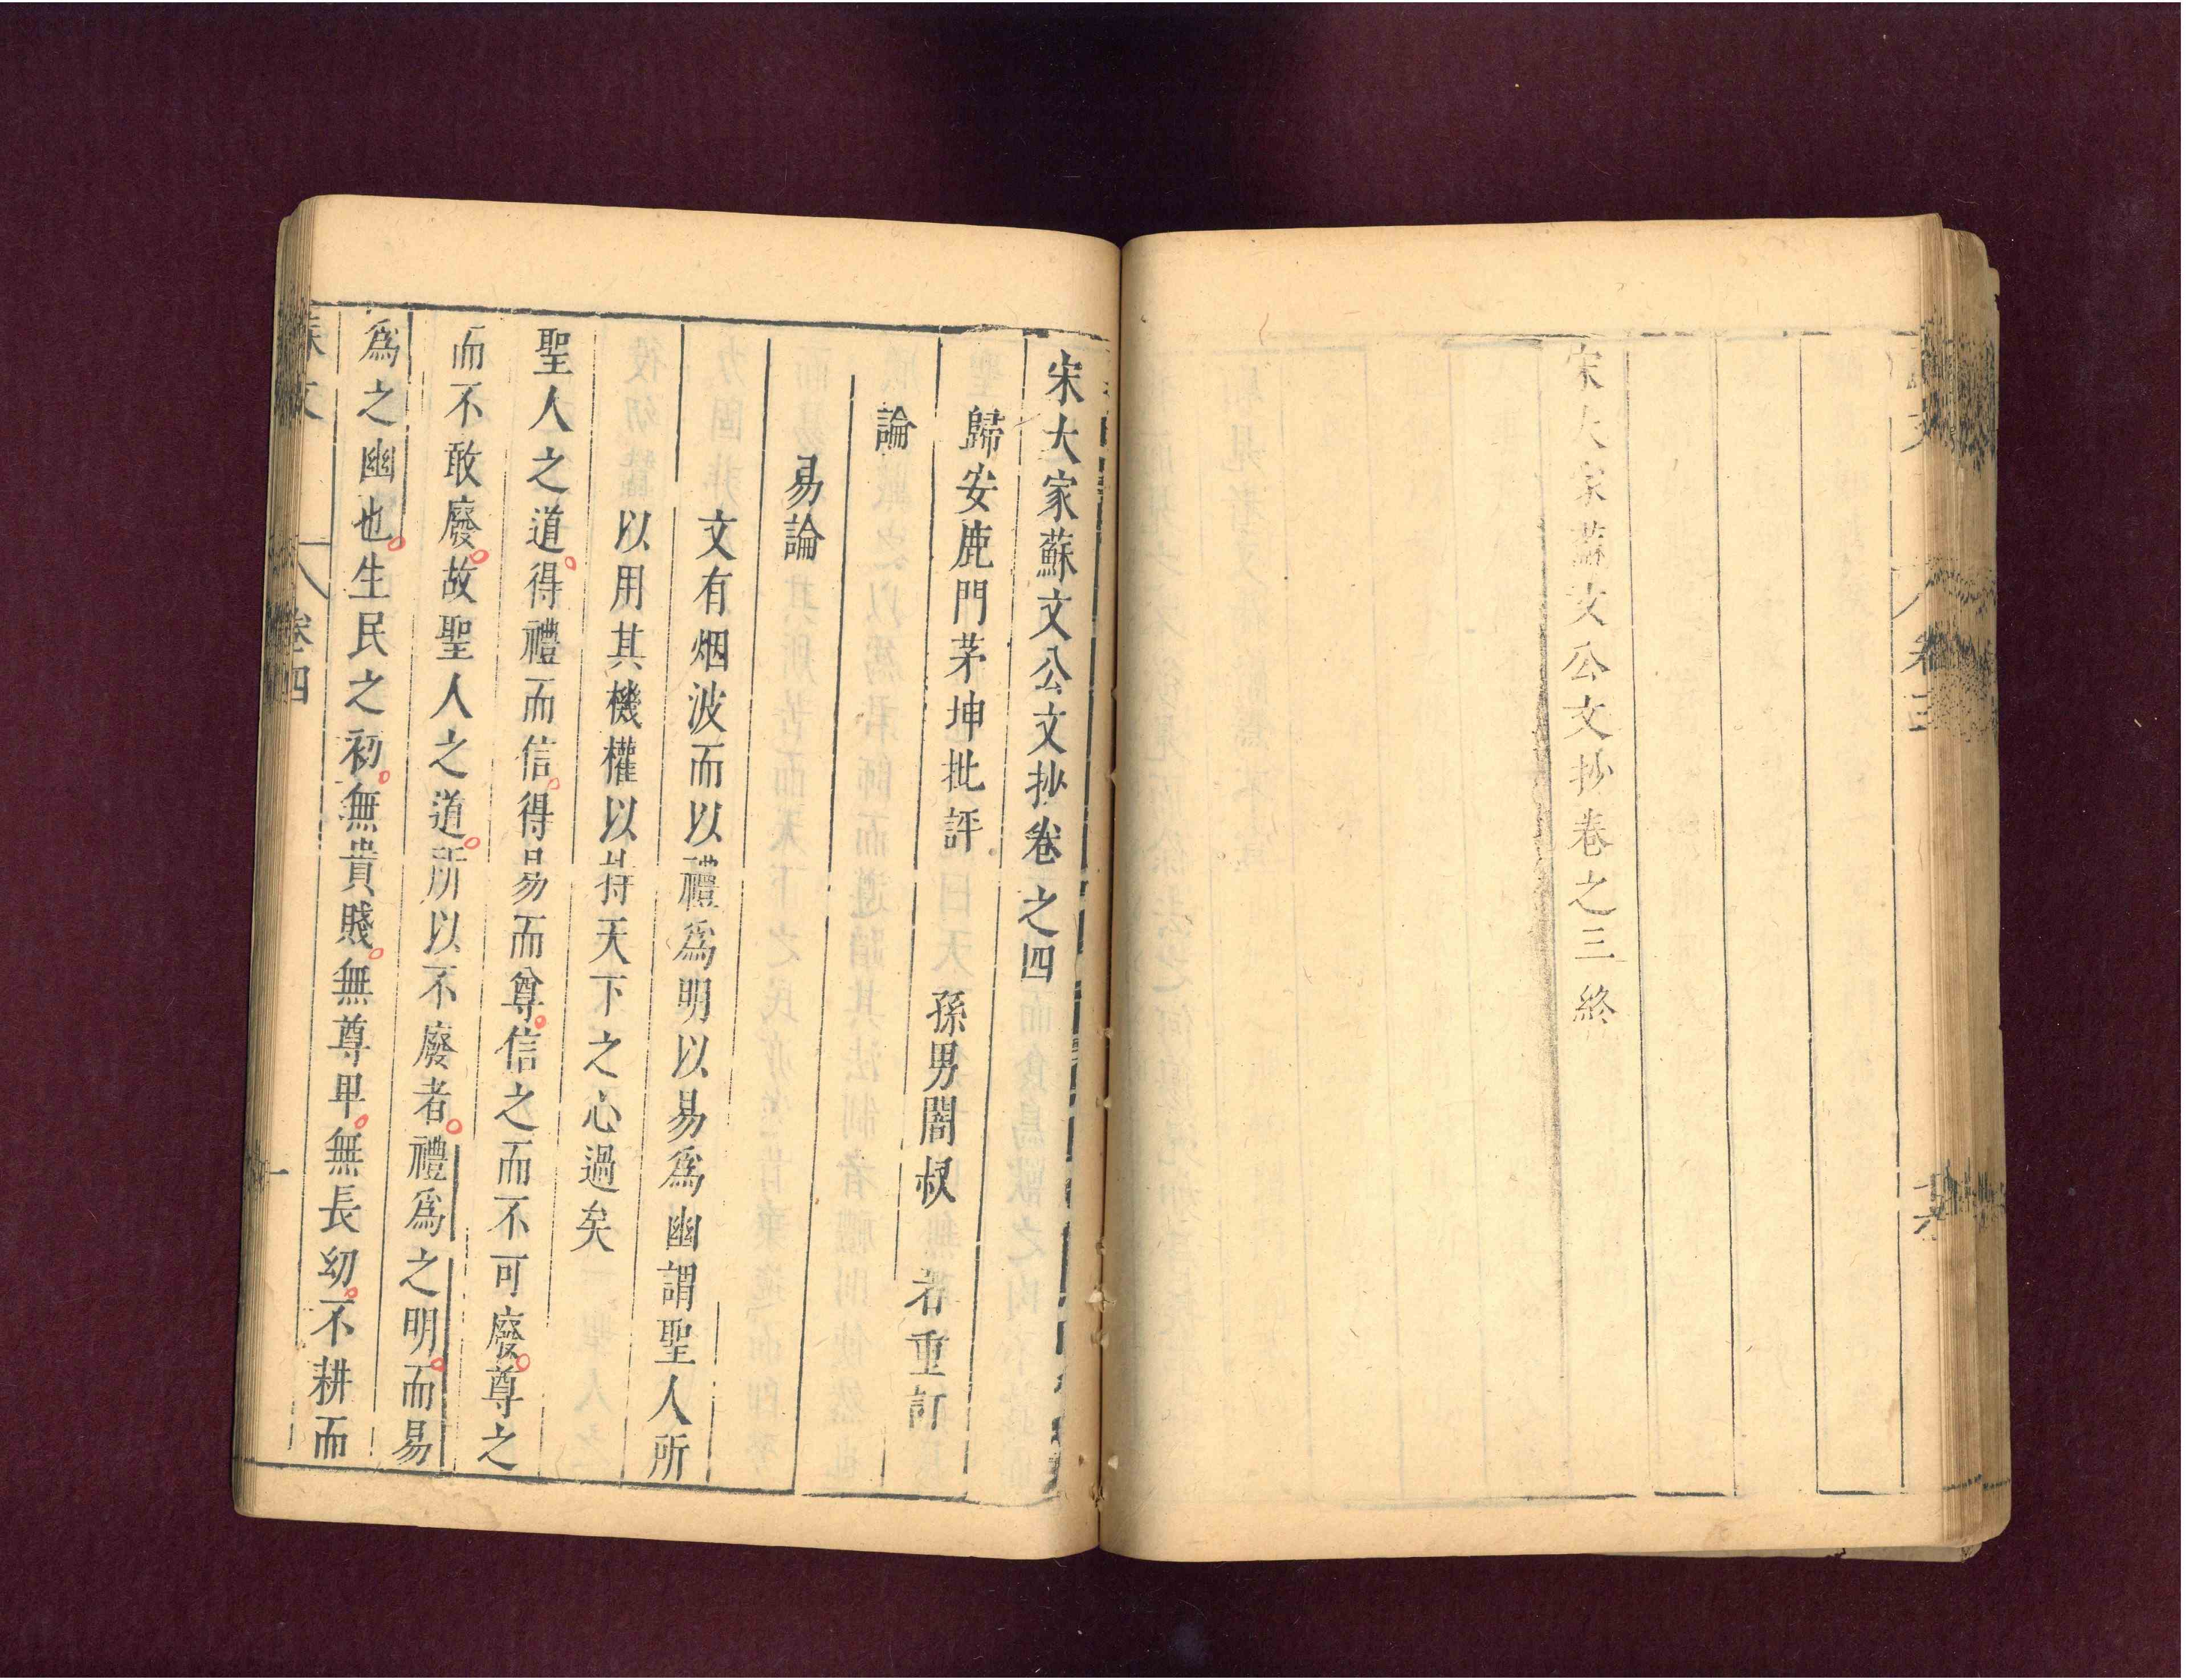 宋大家蘇文公文抄卷之三終
卷三
十六
宋大家蘇文公文抄卷之四
歸安鹿門茅坤批評
孫男闇叔著重訂
論
易論
文有烟波而以禮爲明以易爲幽謂聖人所
以用其機權以持天下之心過矣
聖人之道得禮而信得易而尊信之而不可廢尊之
而不敢廢故聖人之道所以不廢者禮爲之明而易
爲之幽也生民之初無貴賤無尊卑無長幼不耕而
蘇文
卷四
一